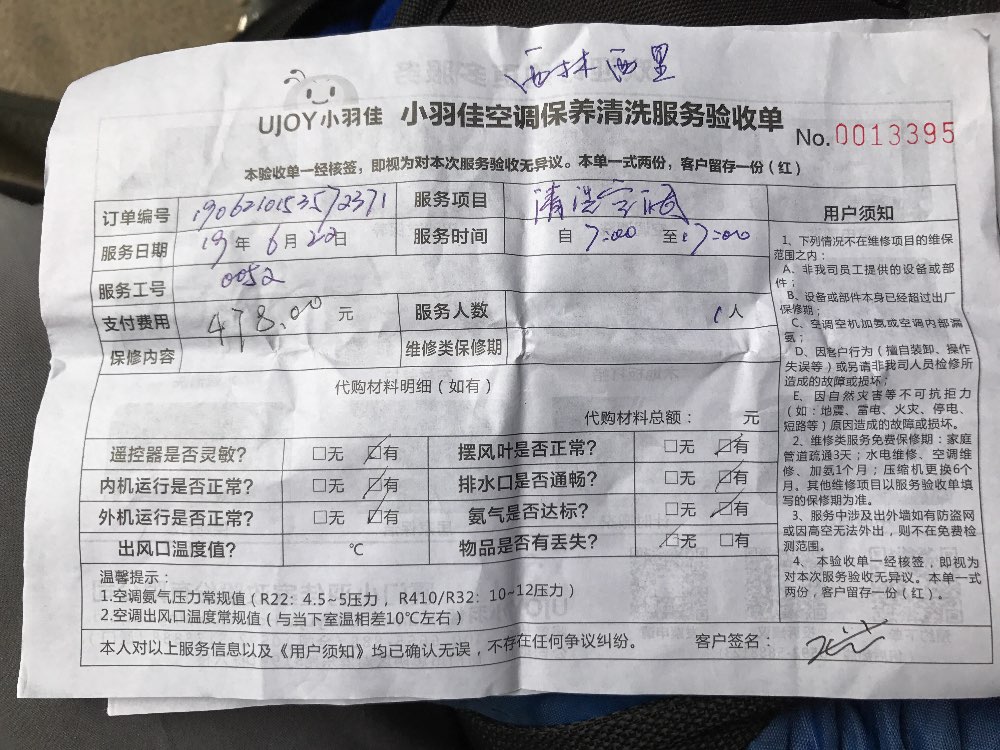 西林西里
UJOY小羽佳 小羽佳空调保养清洗服务验收单
No.0013395
本验收单一经核签，即视为对本次服务验收无异议。本单一式两份，客户留存一份（红）
订单编号 服务项目 清洗
服务日期 19年6月20日 服务时间 自 7:00 至 17:00
服务工号 0052
支付费用 478.00 元 服务人数 1人
保修内容 维修类保修期
代购材料明细（如有）
代购材料总额： 元
遥控器是否灵敏？ □无 □有 摆风叶是否正常？ □无 □有
内机运行是否正常？ □无 □有 排水口是否通畅？ □无 □有
外机运行是否正常？ □无 □有 氨气是否达标？ □无 □有
出风口温度值？ ℃ 物品是否有丢失？ □无 □有
温馨提示：
1.空调氨气压力常规值（R22：4.5~5压力，R410/R32：10~12压力）
2.空调出风口温度常规值（与当下室温相差10℃左右）
本人对以上服务信息以及《用户须知》均已确认无误，不存在任何争议纠纷。 客户签名：
用户须知
1、下列情况不在维修项目的维保
范围之内：
A、非我司员工提供的设备或部
件；
B、设备或部件本身已经超过出厂
保修期；
C、空调空机加氨或空调内部漏
氨；
D、因客户行为（擅自装卸、操作
失误等）或另请非我司人员检修所
造成的故障或损坏；
E、因自然灾害等不可抗拒力
（如：地震、雷电、火灾、停电、
短路等）原因造成的故障或损坏。
2、维修类服务免费保修期：家庭
管道疏通3天；水电维修、空调维
修、加氨1个月；压缩机更换6个
月、其他维修项目以服务验收单填
写的保修期为准。
3、服务中涉及出外墙如有防盗网
或因高空无法外出，则不在免费检
测范围。
4、本验收单一经核签，即视为
对本次服务验收无异议。本单一式
两份，客户留存一份（红）。